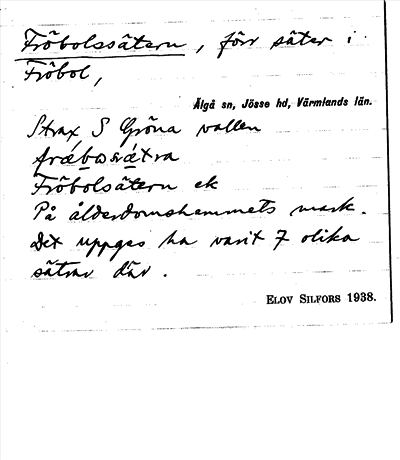 Fröbolssätern, förr säter i
Fröbol,
Älgå sn, Jösse hd, Värmlands län.
Strax S Gröna vallen
Fröbolsätern ek
På ålderdomshemmets mark.
Det uppges ha varit 7 olika
sätrar där.
ELOV SILFORS 1938.